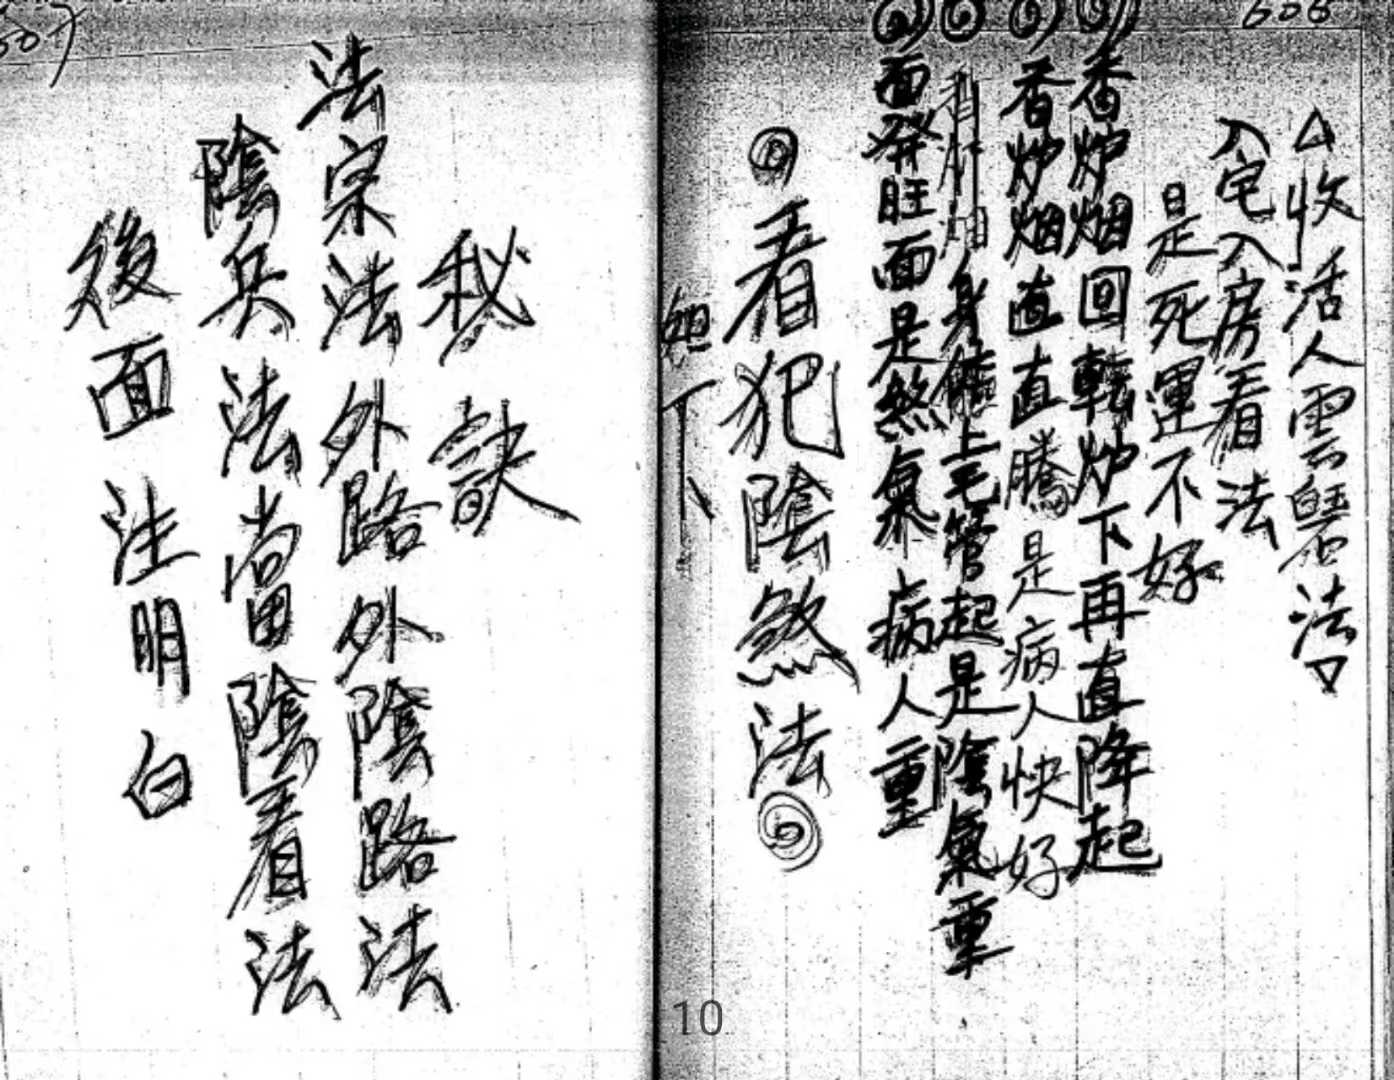 606
△收活人雲㽅法▽
入宅入房看法
是死運不好
香炉烟回転炉下再直降起
香炉烟直直騰是病人快好
身體上毛管起是陰氣重
面発旺面是煞氣病人重
看犯陰煞法
如下
607
秘訣
法宗法外路外陰路法
陰兵法當陰看法
後面注明白
10